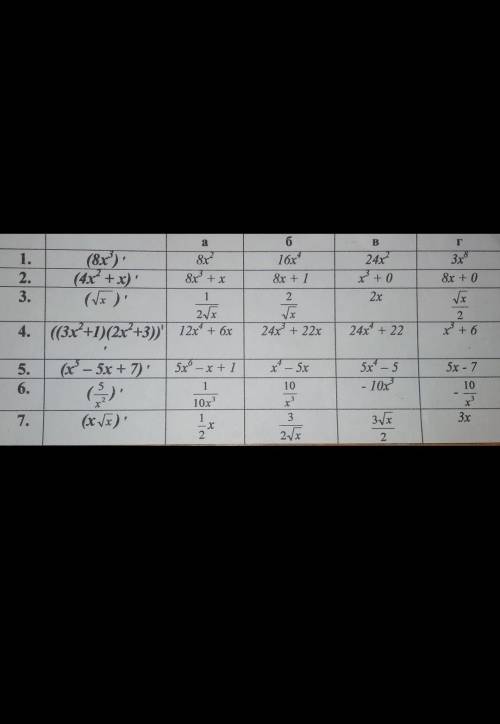 а б в г
1. (8x³)' 8x² 16x⁴ 24x² 3x⁸
2. (4x² + x)' 8x³ + x 8x + 1 x³ + 0 8x + 0
3. (√x)' 1/(2√x) 2/√x 2x √x/2
4. ((3x²+1)(2x²+3))' 12x⁴ + 6x 24x³ + 22x 24x⁴ + 22 x³ + 6
'
5. (x⁵ – 5x + 7)' 5x⁶ – x + 1 x⁴ – 5x 5x⁴ – 5 5x - 7
6. (5/x²)' 1/(10x³) 10/x³ - 10x³ - 10/x³
7. (x√x)' 1/2 x 3/(2√x) 3√x/2 3x